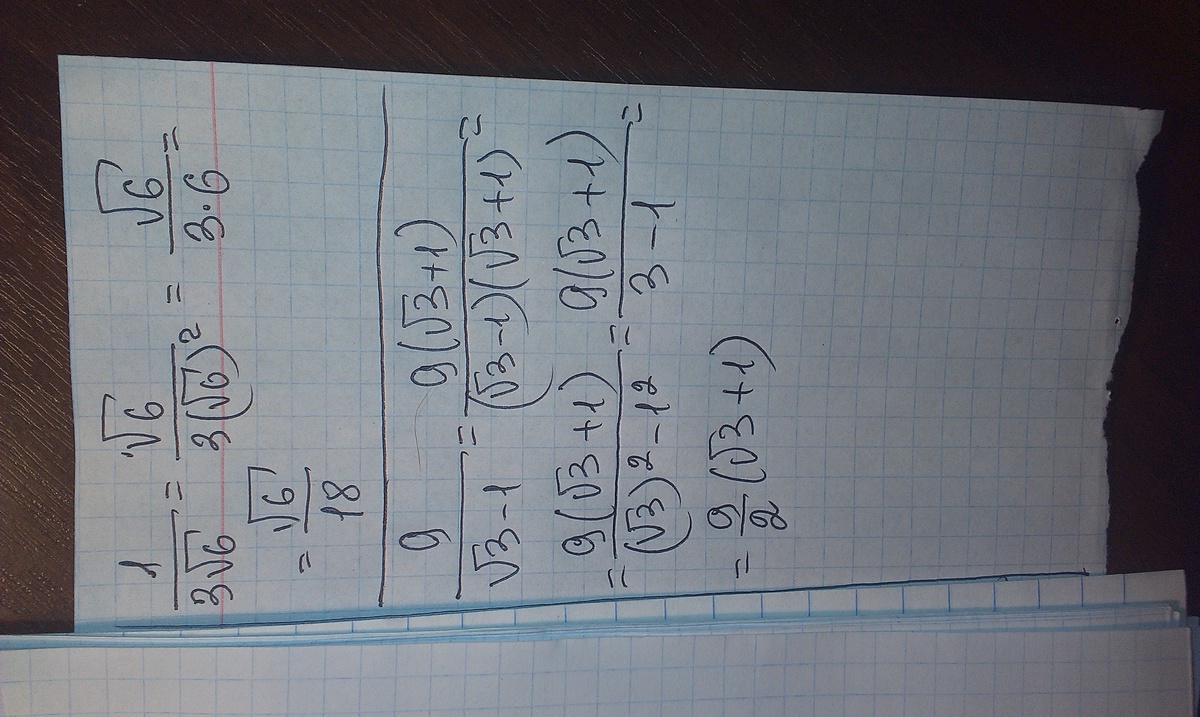 1/(3√6) = √6/(3(√6)²) = √6/(3·6) =
= √6/18
9/(√3-1) = 9(√3+1)/((√3-1)(√3+1)) =
= 9(√3+1)/((√3)²-1²) = 9(√3+1)/(3-1) =
= 9/2 (√3+1)